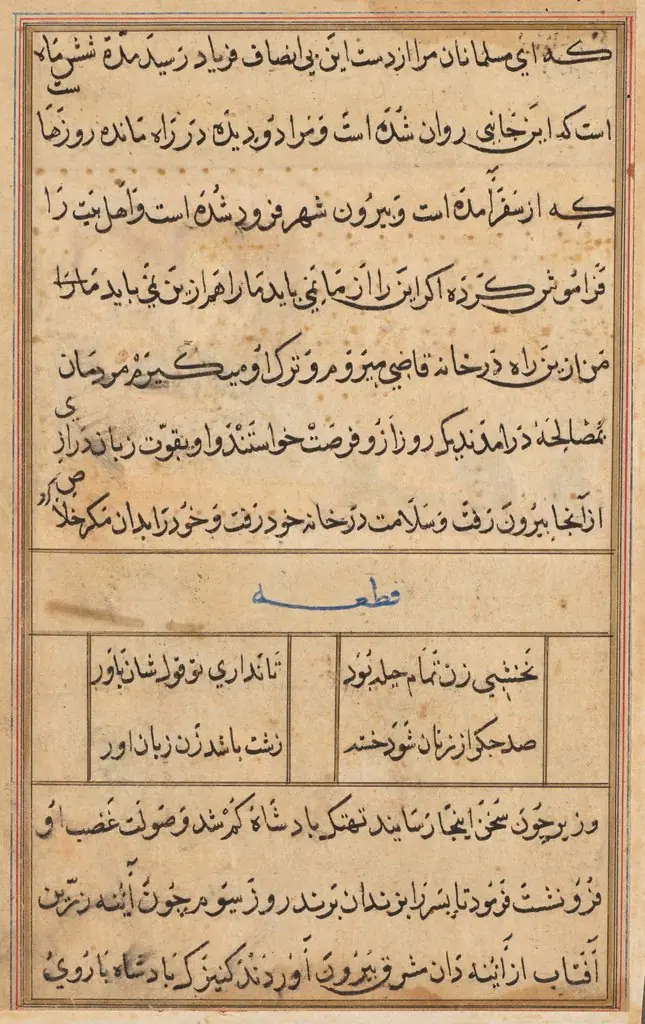 که ای مسلمانان مرا از دست این بی انصاف فریاد رسید مدة شش ماه
است که این جانبی روان شده است و مرا دو دیده در راه مانده روزها ست
که از سفر آمده است و بیرون شهر فرود شده است و اهل بیت را
فراموش کرده اکر این را از ما نمی باید ما را هم ازین نمی باید
من ازین راه در خانه قاضی میروم و ترک او میکیرم مردمان
بمصالحه در امدند یک روز ازو فرصت خواستند و او بقوت زبان درازی
از آنجا بیرون رفت و سلامت در خانه خود رفت و خود را بدان مکر خلاص کرد
قطعه
نخشبی زن تمام حیله بود
تا نداری تو قول شان باور
صد جکر از زنان شود خسته
زشت باشد زن زبان اور
وزیر چون سخن اینجا رسانید تهتک بادشاه کم شد و صولت غضب او
فرو نشست فرمود تا پسر را بزندان برند روز سیوم چون آئنه زرین
آفتاب از آئینه دان مشرق بیرون آوردند کنیزک بادشاه با روی